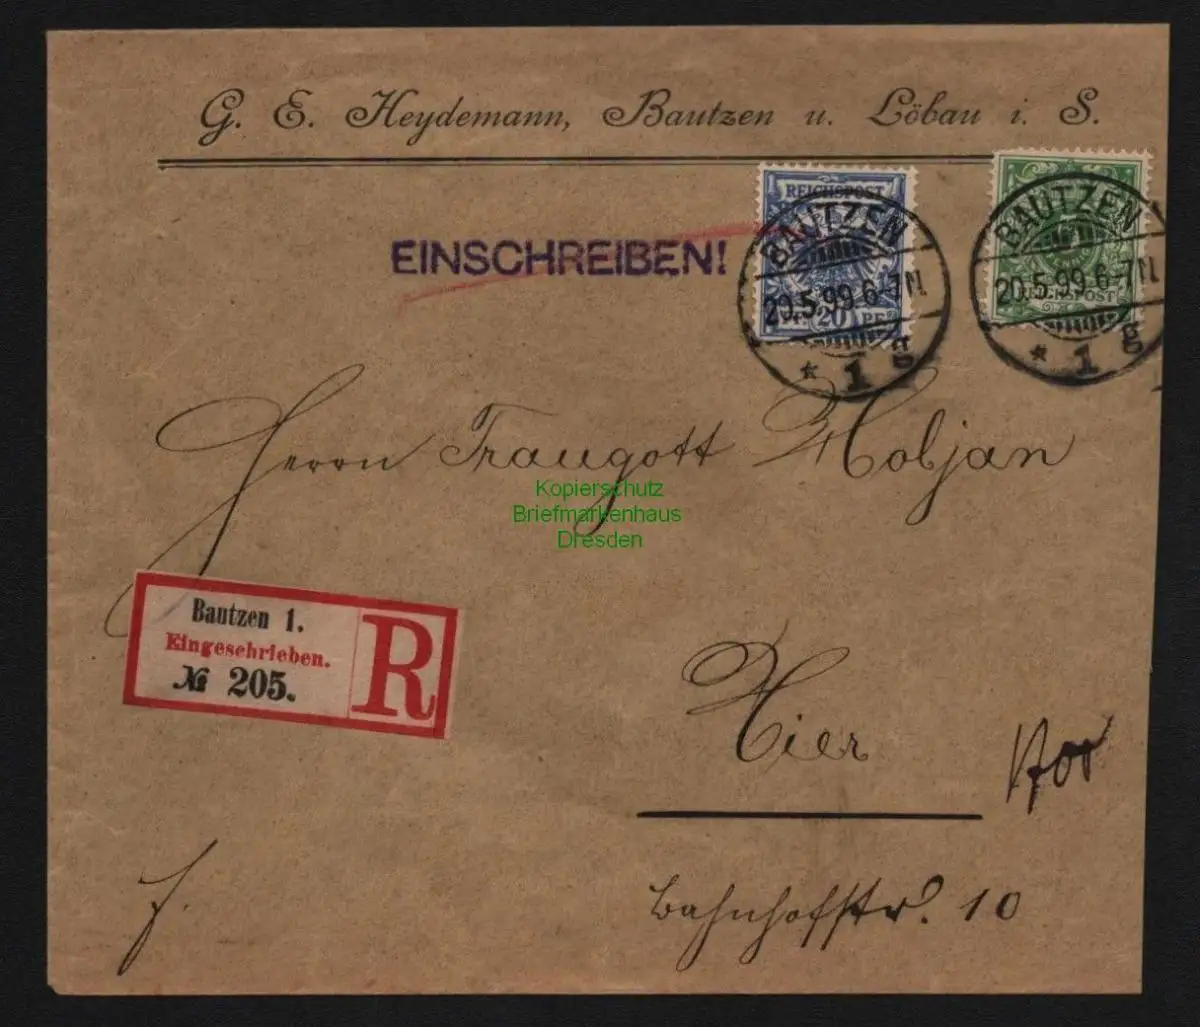 G. E. Heydemann, Bautzen u. Löbau i. S.
EINSCHREIBEN!
REICHSPOST
PF. 20 PF.
BAUTZEN
20.5.99.6-7N.
* 1 g
REICHSPOST
BAUTZEN
20.5.99.6-7N.
* 1 g
Herrn Traugott Holjan
Kopierschutz
Briefmarkenhaus
Dresden
Bautzen 1.
Eingeschrieben.
№ 205.
R
Hier
Bahnhofstr. 10